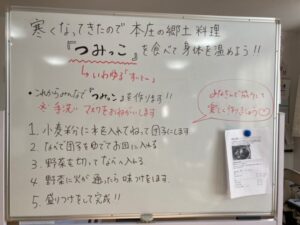 寒くなってきたので本庄の郷土料理
『つみっこ』を食べて身体を温めよう!!
↳いわゆる
これからみんなで『つみっこ』を作ります!!
※手洗い マスクをおねがいします
1. 小麦粉に水を入れてねって団子にします
2. なべで団子をゆでてお皿に入れる
3. 野菜を切ってなべへ入れる
4. 野菜に火が通ったら味つけをします
5. 盛りつけをして完成!!
みなさんで協力して
楽しく作りましょう♡